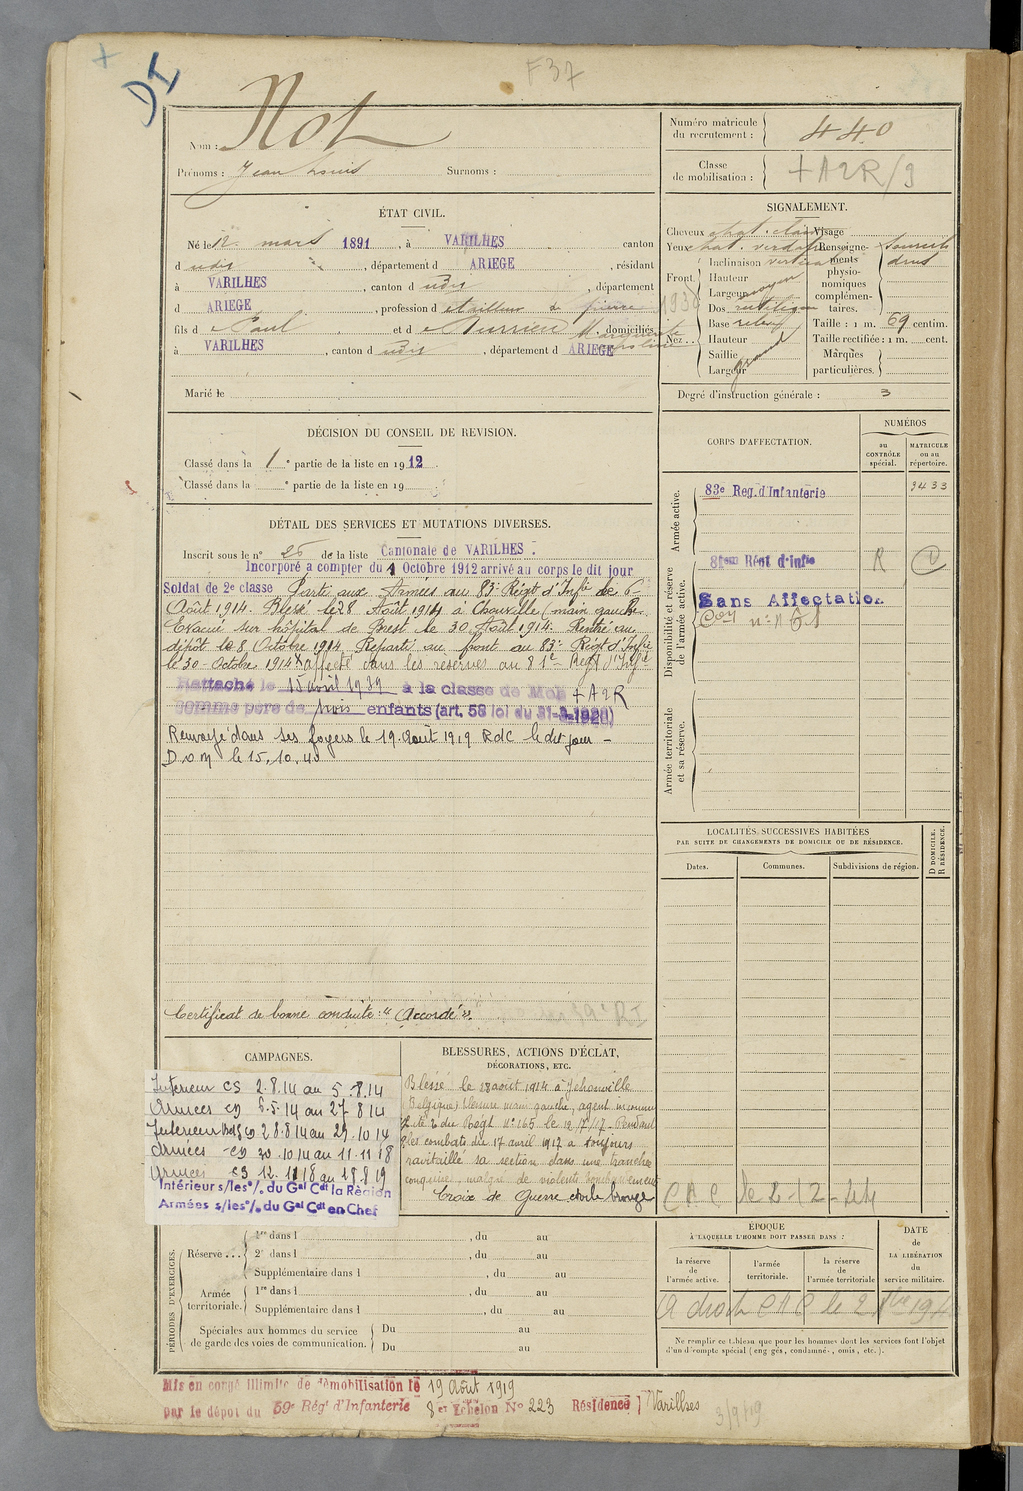 F37
DI
Nom : Not
Prénoms : Jean Louis Surnoms :
Numéro matricule du recrutement : 440
Classe de mobilisation : + A2R/9
ÉTAT CIVIL.
Né le 12 mars 1891, à VARILHES canton
d udis, département d ARIEGE, résidant
à VARILHES, canton d udis, département
d ARIEGE, profession de tailleur de pierre 1939
fils de Paul et de Marguerite domiciliés
à VARILHES, canton d udis, département d ARIEGE
Marié le
SIGNALEMENT.
Cheveux chat. clair
Yeux chat. verdâtre
Front Inclinaison vertical
Hauteur
Largeur moyen
Nez Dos rectiligne
Base relevé
Hauteur
Saillie
Largeur grand
Visage
Renseignements physionomiques complémentaires. Sourcils drus
Taille : 1 m. 69 centim.
Taille rectifiée : 1 m. cent.
Marques particulières.
Degré d'instruction générale : 3
DÉCISION DU CONSEIL DE REVISION.
Classé dans la 1e partie de la liste en 1912
Classé dans la e partie de la liste en 19
CORPS D'AFFECTATION.
NUMÉROS
au CONTRÔLE spécial.
MATRICULE ou au répertoire.
Armée active.
83e Reg. d'Infanterie 3433
Disponibilité et réserve de l'armée active.
81eme Régt d'Infie R
Sans Affectation
Armée territoriale et sa réserve.
DÉTAIL DES SERVICES ET MUTATIONS DIVERSES.
Inscrit sous le n° 25 de la liste Cantonale de VARILHES.
Incorporé a compter du 1 Octobre 1912 arrivé au corps le dit jour
Soldat de 2e classe Parti aux Armées au 83e Régt d'Infie le 6
Août 1914. Blessé le 28 Août 1914 à (main gauche.
Evacué sur hôpital de Brest le 30 Août 1914. Rentré au
dépôt le 8 Octobre 1914. Reparti au front au 83e Régt d'Infie
le 30 Octobre 1914 affecté dans les réserves au 81e Régt d'Infie
Rattaché le 15 avril 1939 à la classe de Mob + A2R
comme père de trois enfants (art. 58 loi du 31-3-1928)
Renvoyé dans ses foyers le 19 Août 1919 RdC le dit jour -
DOM le 15.10.40
Certificat de bonne conduite : "Accordé".
LOCALITÉS SUCCESSIVES HABITÉES
PAR SUITE DE CHANGEMENTS DE DOMICILE OU DE RÉSIDENCE.
Dates. Communes. Subdivisions de région. D DOMICILE. R RÉSIDENCE.
CAMPAGNES.
Intérieur CS 2.8.14 au 5.8.14
Armées CD 6.5.14 au 27.8.14
Intérieur Bdg CD 28.8.14 au 29.10.14
Armées CD 30.10.14 au 11.11.18
Armées CS 12.11.18 au 18.8.19
Intérieur s/les°/. du Gal Cdt la Région
Armées s/les°/. du Gal Cdt en Chef
BLESSURES, ACTIONS D'ÉCLAT,
DÉCORATIONS, ETC.
Blessé le 28 août 1914 à Jehonville
(Belgique) blessure main gauche, agent inconnu
Cité O du Regt N° 165 le 12/5/17. Pendant
les combats du 17 avril 1917 a toujours
ravitaillé sa section dans une tranchée
conquise, malgré de violents bombardements
Croix de Guerre étoile bronze
CAC le 2-12-44
ÉPOQUE
À LAQUELLE L'HOMME DOIT PASSER DANS :
la réserve de l'armée active.
l'armée territoriale.
la réserve de l'armée territoriale
DATE de LA LIBÉRATION du service militaire.
A droit CAC le 2
Ne remplir ce tableau que pour les hommes dont les services font l'objet
d'un décompte spécial (engagés, condamnés, omis, etc.).
PÉRIODES D'EXERCICES.
Réserve... 1re dans l , du au
2e dans l , du au
Supplémentaire dans l , du au
Armée territoriale. 1re dans l , du au
Supplémentaire dans l , du au
Spéciales aux hommes du service de garde des voies de communication. Du au
Du au
Mis en congé illimité de démobilisation le 19 Août 1919
par le dépôt du 59e Rég' d'Infanterie 8e Echelon N° 223 Résidence Varilhes
3/9/19